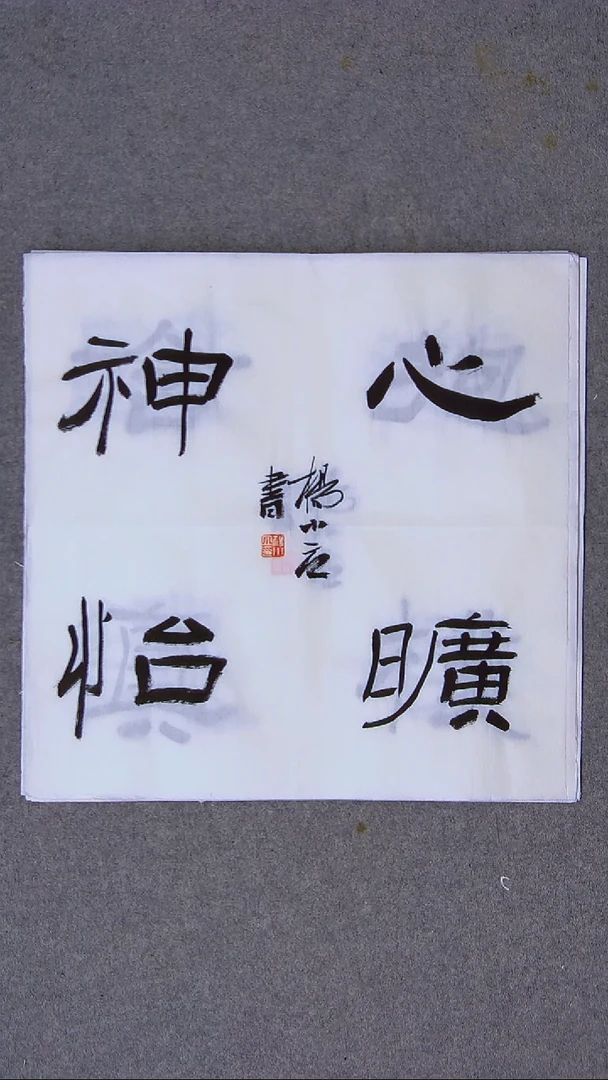 心曠
神怡
楊小
書